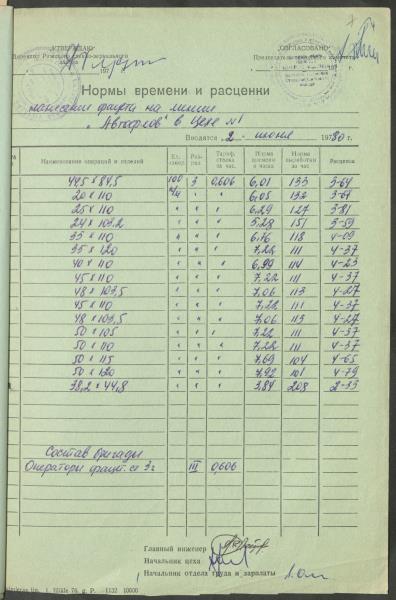 „УТВЕРЖДАЮ"
Директор Рижского
„СОГЛАСОВАНО"
Председатель
197 г.
197 г.
Нормы времени и расценки
нанесение фацета на линии
„Автофлов" в цехе №1
Вводятся 2 - июня 1980 г.
№ Наименование операций и изделий Ед. Раз-ряд Тариф. ставка за час. Норма времени в часах Норма выработки за час. Расценки
445 x 845 100 3 0,606 6,01 133 3-64
20 x 110 " " 6,05 132 3-67
25 x 110 " " " 6,29 127 3-81
24 x 103,2 " " " 5,28 151 3-59
35 x 110 " " " 6,76 118 4-09
35 x 120 " " " 7,22 111 4-37
40 x 110 " " " 6,99 114 4-23
45 x 110 " " " 7,22 111 4-37
48 x 103,5 " " " 7,06 113 4-27
45 x 110 " " " 7,22 111 4-37
48 x 103,5 " " " 7,06 113 4-27
50 x 105 " " " 7,22 111 4-37
50 x 110 " " " 7,22 111 4-37
50 x 115 " " " 7,69 104 4-65
50 x 120 " " " 7,92 101 4-79
38,2 x 44,8 " " " 3,84 208 2-33
Состав бригады
Операторы фацет. ст 3г III 0,606
Главный инженер
Начальник цеха
Начальник отдела труда и зарплаты